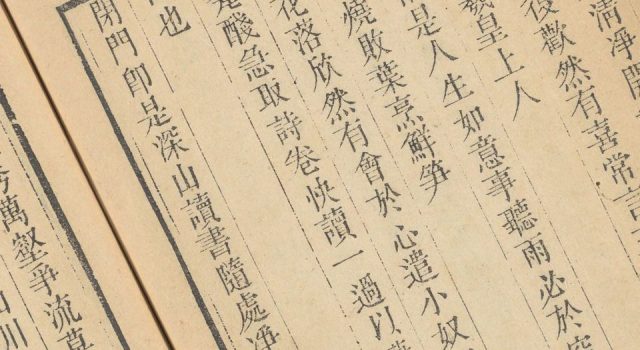 清淨閒
後歡然有喜常言
羲皇上人
是人生如意事聽雨必於空
燒敗葉烹鮮笋
花落欣然有會於心遣小奴
醆急取詩卷快讀一過以
也
閉門即是深山讀書隨處淨
秀萬壑爭流草
山川